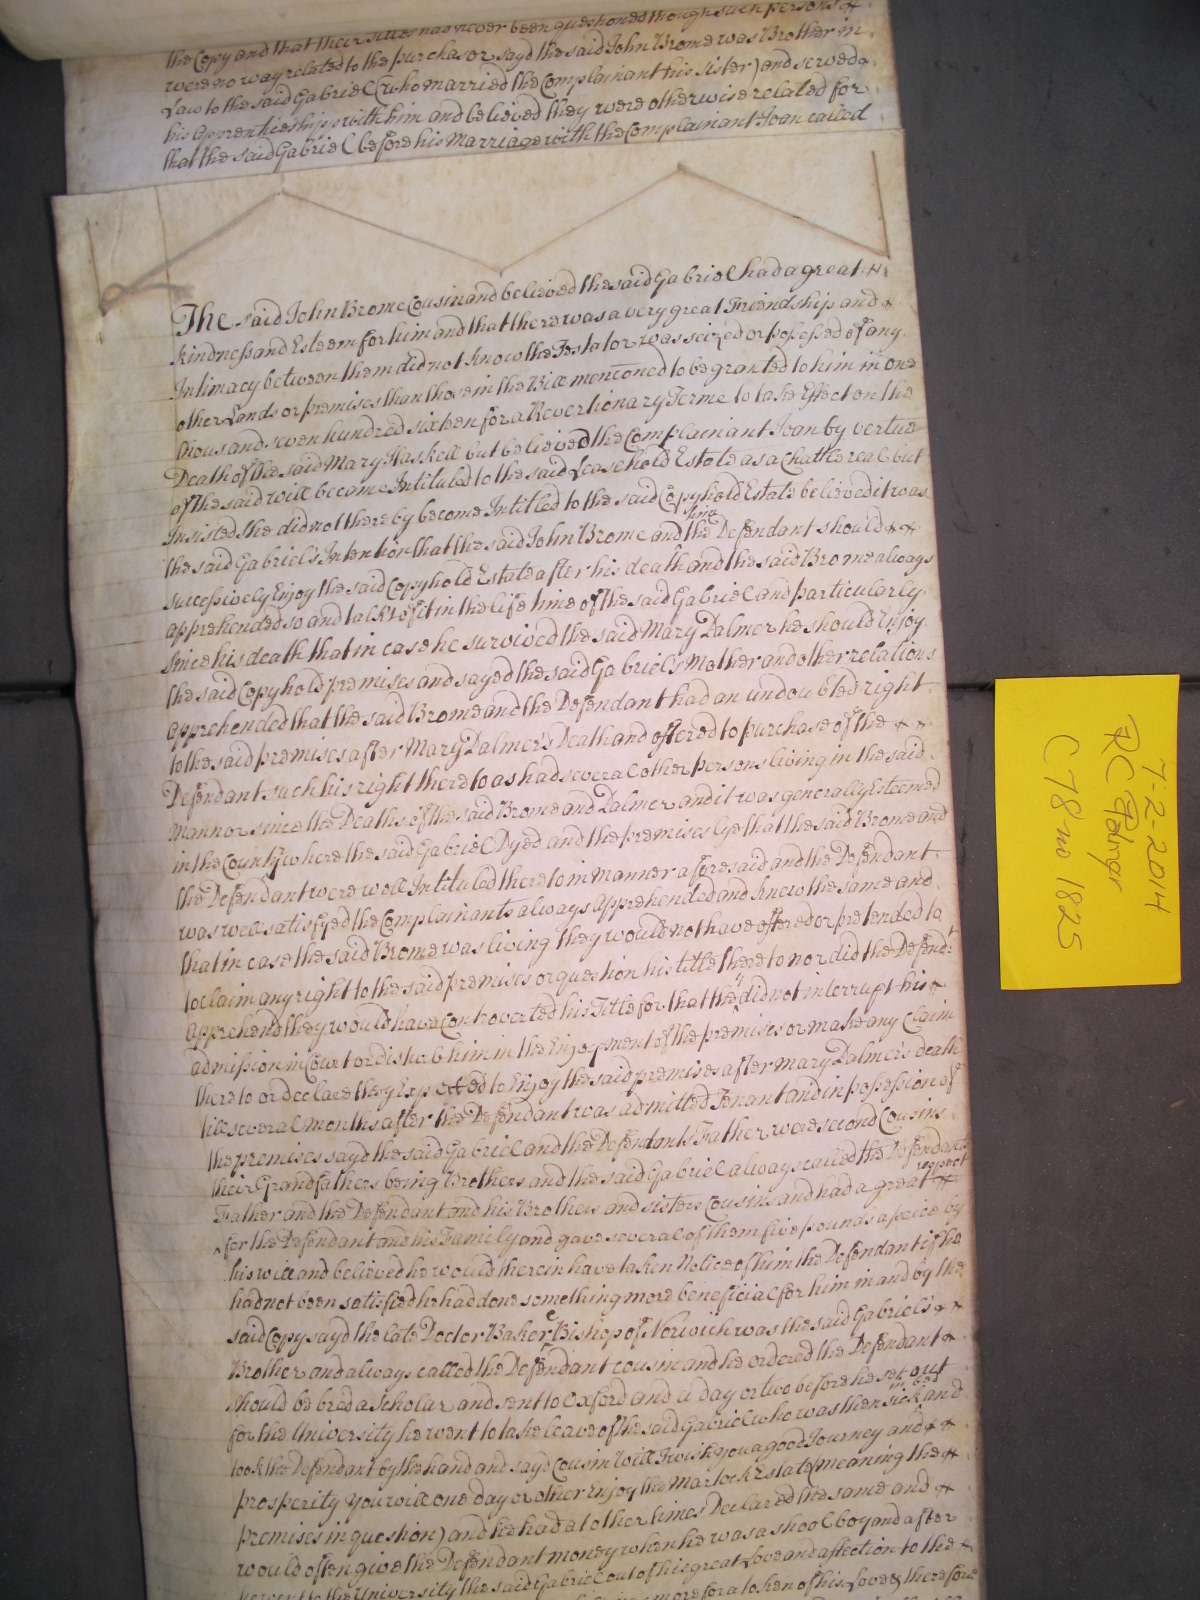 the Copy and that their titles had never been questioned though such persons
were no way related to the purchasor sayd the said John Brome was Brother in
Law to the said Gabriel (who married the Complainant his sister) and served
his Apprentieship with him and believed they were otherwise related for
that the said Gabriel before his Marriage with the Complainant Joan called
The said John Brome Cousin and believed the said Gabriel had a great
kindness and Esteem for him and that there was a very great Friendship and
Intimacy between them did not know the Testator was seized or possessed of any
other Lands or premises than those in the Bill mentioned to be granted to him in one
thousand seven hundred sixteen for a Revertionary Terme to take Effect on the
Death of the said Mary Haskell but believed the Complainant Joan by vertue
of the said will became Intituled to the said Leasehold Estate as a Chattle real but
Insisted she did not thereby become Intitled to the said Copyhold Estate believed it was
the said Gabriel's Intention that the said John Brome and him the Defendant should
successively Enjoy the said Copyhold Estate after his death and the said Brome always
apprehended so and talk't of it in the life time of the said Gabriel and particularly
since his death that in case he survived the said Mary Dalmer he should Enjoy
the said Copyhold premises and sayed the said Gabriel's Mother and other relations
apprehended that the said Brome and the Defendant had an undoubted right
to the said premises after Mary Dalmer's Death and offered to purchase of the
Defendant such his right thereto as had several other persons living in the said
Mannor since the Deaths of the said Brome and Dalmer and it was generally Esteemed
in the County where the said Gabriel Dyed and the premises lye that the said Brome and
the Defendant were well Intituled thereto in manner aforesaid and the Defendant
was well satisfyed the Complainants always apprehended and knew the same and
that in case the said Brome was living they would not have offered or pretended to
to claim any right to the said premises or question his title thereto nor did the Defend.t
apprehend they would have Controverted his Title for that they did not interrupt his
admission in Court or disturb him in the Enjoyment of the premises or make any Claim
thereto or declare they Expected to Enjoy the said premises after Mary Dalmer's death
till several months after the Defendant was admitted Tenant and in possession of
the premises sayd the said Gabriel and the Defendants Father were second Cousins
their Grandfathers being Brothers and the said Gabriel always called the Defendants
Father and the Defendant and his Brothers and sisters Cousins and had a great respect
for the Defendant and his Family and gave several of them five pounds apeice by
his will and believed he would therein have taken Notice of him the Defendant if he
had not been satisfied he had done something more beneficial for him in and by the
said Copy sayd the late Doctor Baker Bishop of Norwich was the said Gabriel's
Brother and always called the Defendant cousin and he ordered the Defendant
should be bred a Scholar and sent to Oxford and a day or two before he set out
for the University he went to take leave of the said Gabriel who was then sick in bed and
took the Defendant by the hand and sayd Cousin Will I wish you a good Journey and
prosperity you will one day or other Enjoy the Marlock Estate (meaning the
premises in question) and he had at other times Declared the same and
would often give the Defendant money when he was a shool boy and after
he went to the University the said Gabriel out of his great Love and affection to the
more for a token of his Love & therefore
7-2-2014
RC Palmer
C 78 no 1825